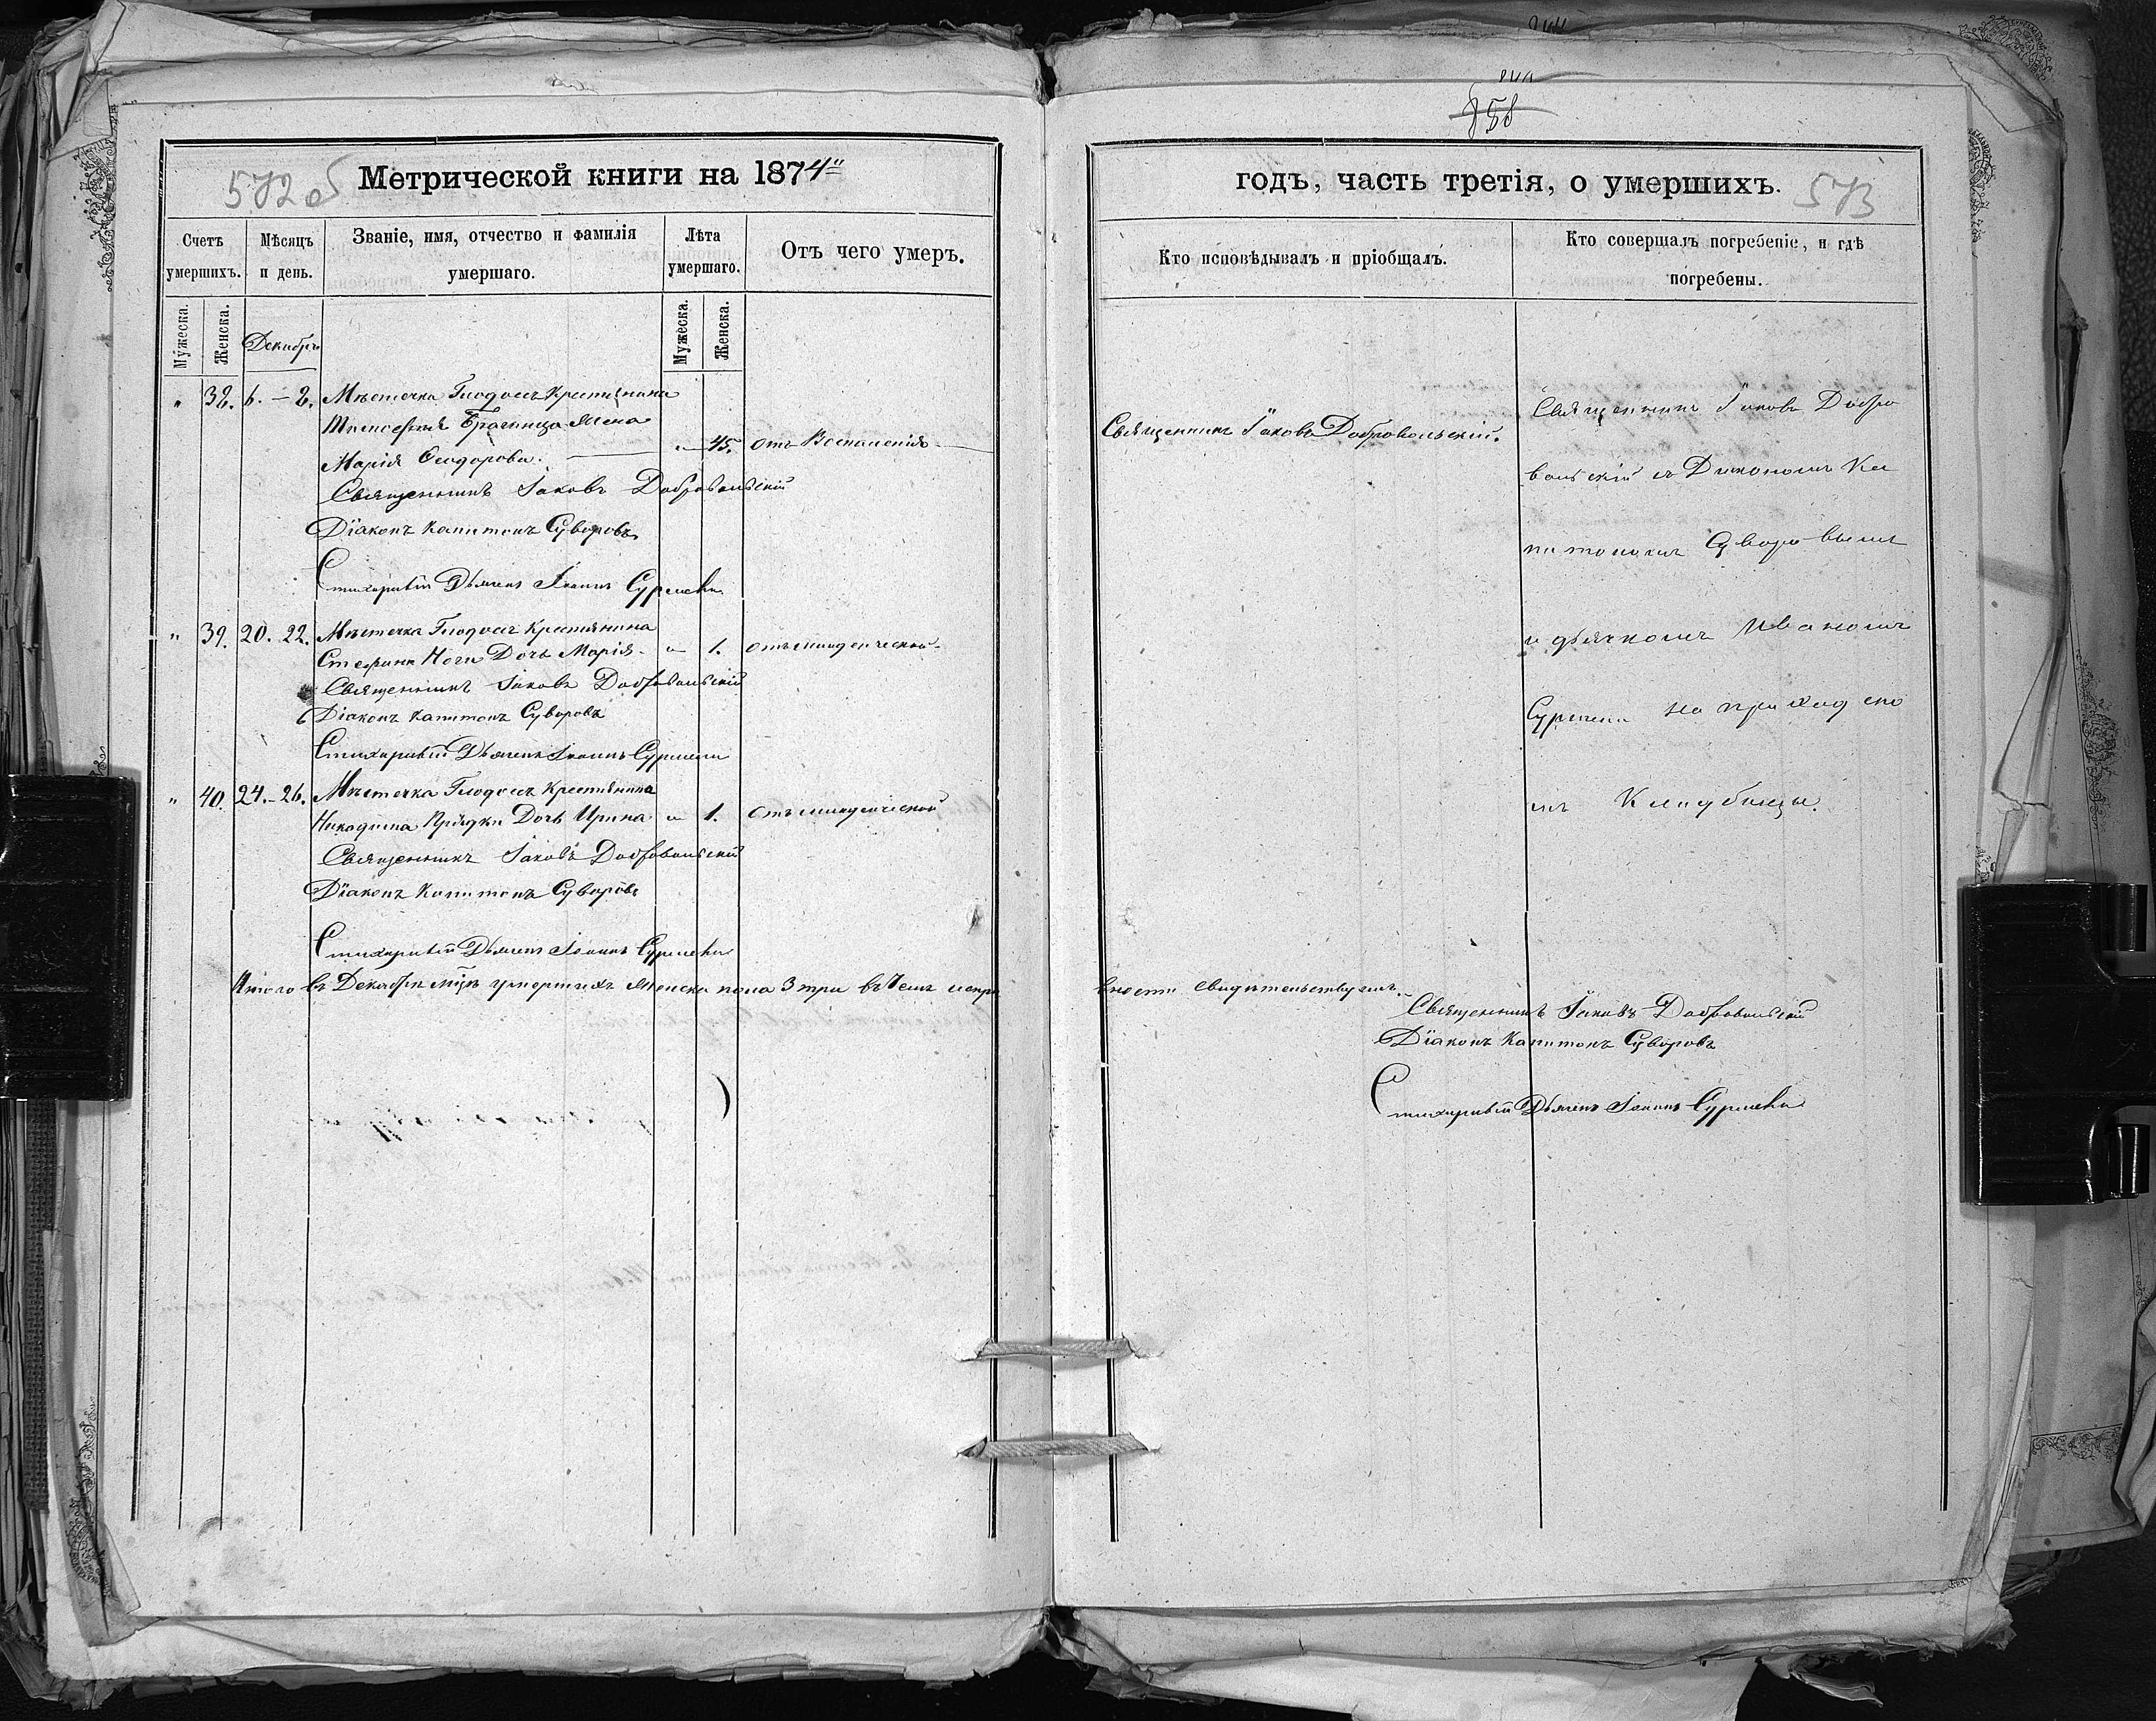 858
572 об
Метрической книги на 1874"
годъ, часть третія, о умершихъ.
573
Счетъ умершихъ.
Мѣсяцъ и день.
Званіе, имя, отчество и фамилія умершаго.
Лѣта умершаго.
Отъ чего умеръ.
Кто исповѣдывалъ и пріобщалъ.
Кто совершалъ погребеніе, и гдѣ погребены.
Мужеска.
Женска.
Мужеска.
Женска.
Декабрь
" 38. 6. – 8. Мѣстечка Глодосъ Крестьянина
жена
Марія Ѳеодорова. " 45. отъ Воспаленія
Священникъ Іаковъ Добровольскій
Діаконъ Капитонъ Суворовъ
Стихарный Дьячекъ Іоаннъ
" 39. 20. 22. Мѣстечка Глодосъ Крестьянина
Стефана Ноги Дочь Марія " 1. отъ младенческой
Священникъ Іаковъ Добровольскій
Діаконъ Капитонъ Суворовъ
Стихарный Дьячекъ Іоаннъ
" 40. 24. – 26. Мѣстечка Глодосъ Крестьянина
Никодима Дочь Ирина " 1. отъ младенческой
Священникъ Іаковъ Добровольскій
Діаконъ Капитонъ Суворовъ
Стихарный Дьячекъ Іоаннъ
Итого въ Декабрѣ мцѣ умершихъ женска пола 3 три въ чемъ испра
Священникъ Іаковъ Добровольскій.
Священникъ Іаковъ Добро
вольскій съ Діакономъ Ка
питономъ Суворовымъ
и дьячкомъ Иваномъ
на приходско
мъ Кладбищѣ.
вности свидѣтельствуемъ.
Священникъ Іаковъ Добровольскій
Діаконъ Капитонъ Суворовъ
Стихарный Дьячекъ Іоаннъ